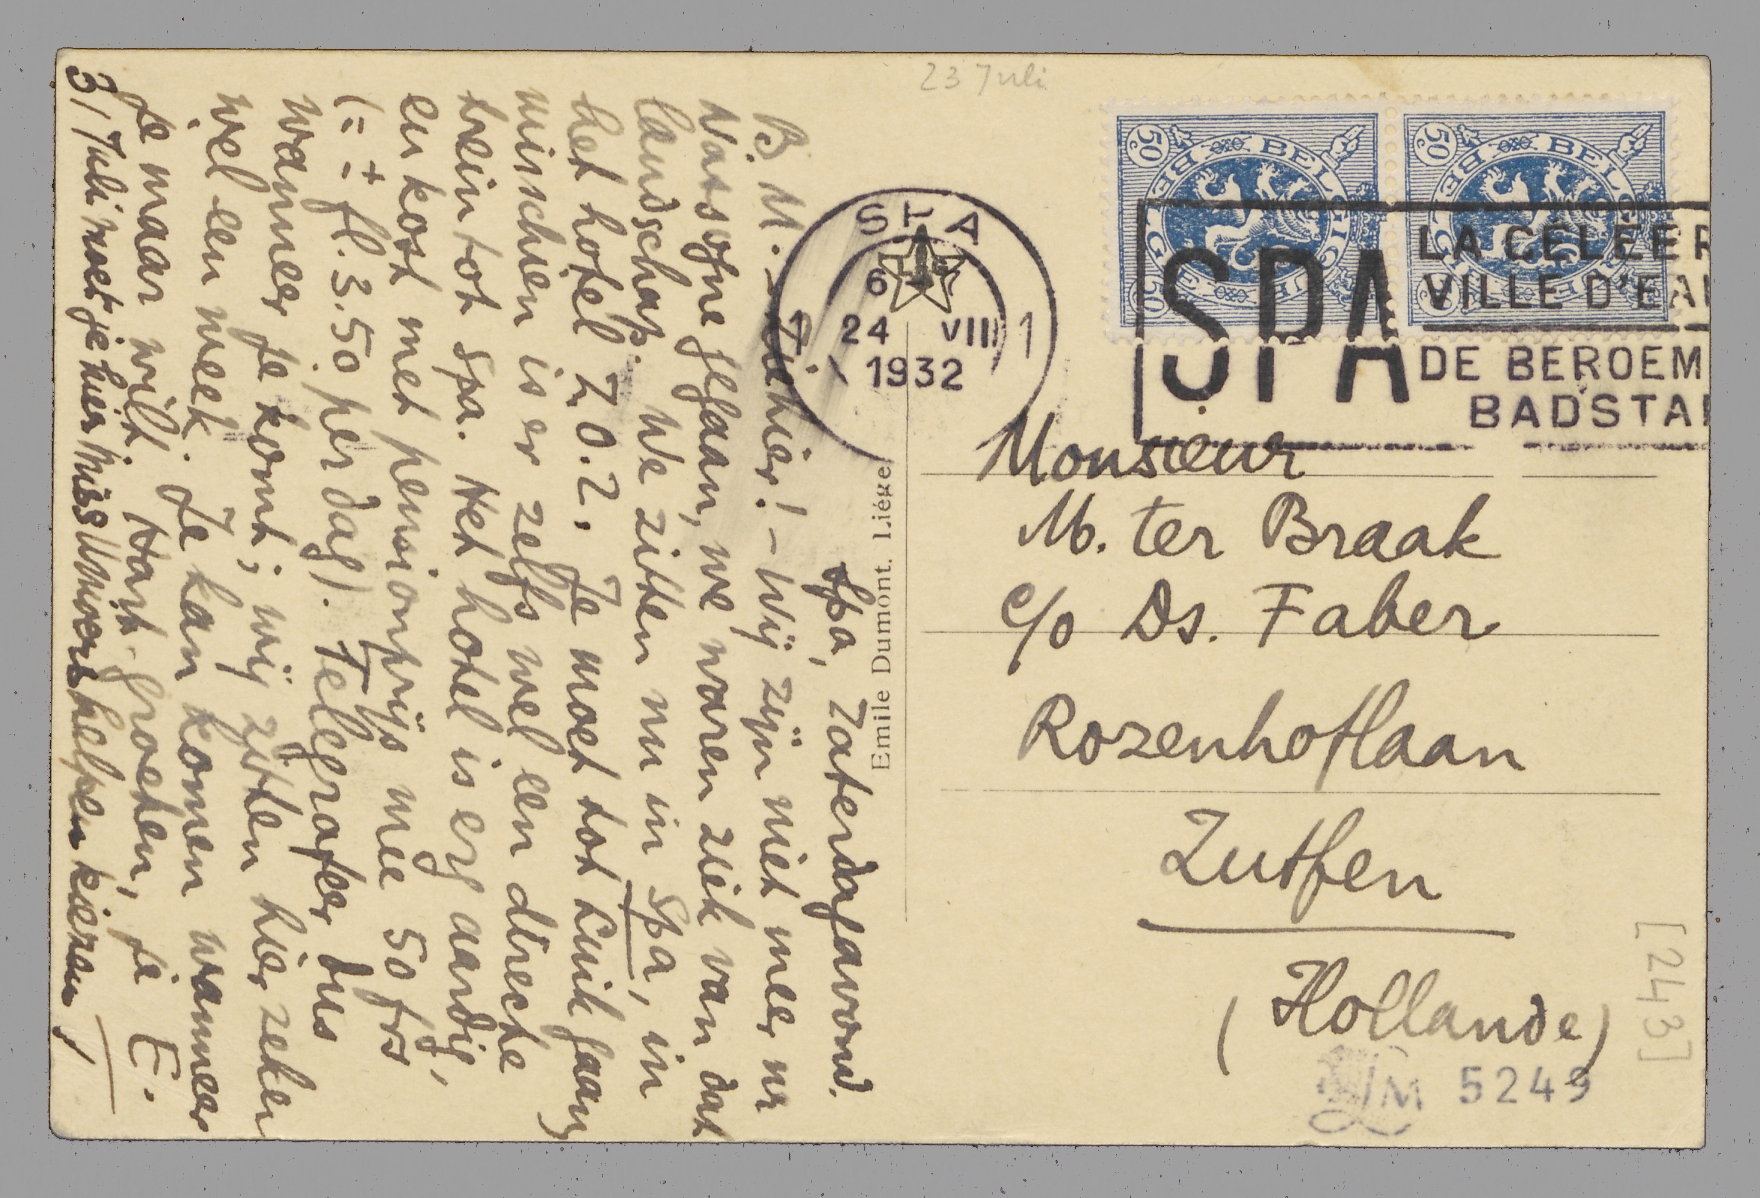 Spa, Zaterdagavond.
B M. – Ziehier! – Wij zijn niet meer nr
Warsofne gegaan, we waren ziek van dat
landschap. We zitten nu in Spa, in
het hotel Z.O.Z. Je moet tot Luik gaan,
misschien is er zelfs wel een directe
trein tot Spa. Het hotel is erg aardig,
en kost met pensionprijs mee 50 frs
(= + fl. 3.50 per dag). Telegrafeer dus
wanneer je komt; wij zitten hier zeker
wel een week. Je kan komen wanneer
je maar wilt. Hart. groeten, je E.
31 Juli moet je hier Miss Univers helpen kiezen!
23 Juli
BELGIQUE BELGIE
50 50
BELGIQUE BELGIE
50 50
SPA
1 24 VII 1
1932
SPA
LA CELEBR
VILLE D'EA
DE BEROEM
BADSTA
Emile Dumont. Liége
Monsieur
M. ter Braak
c/o Ds. Faber
Rozenhoflaan
Zutfen
(Hollande)
[243]
LM 5249